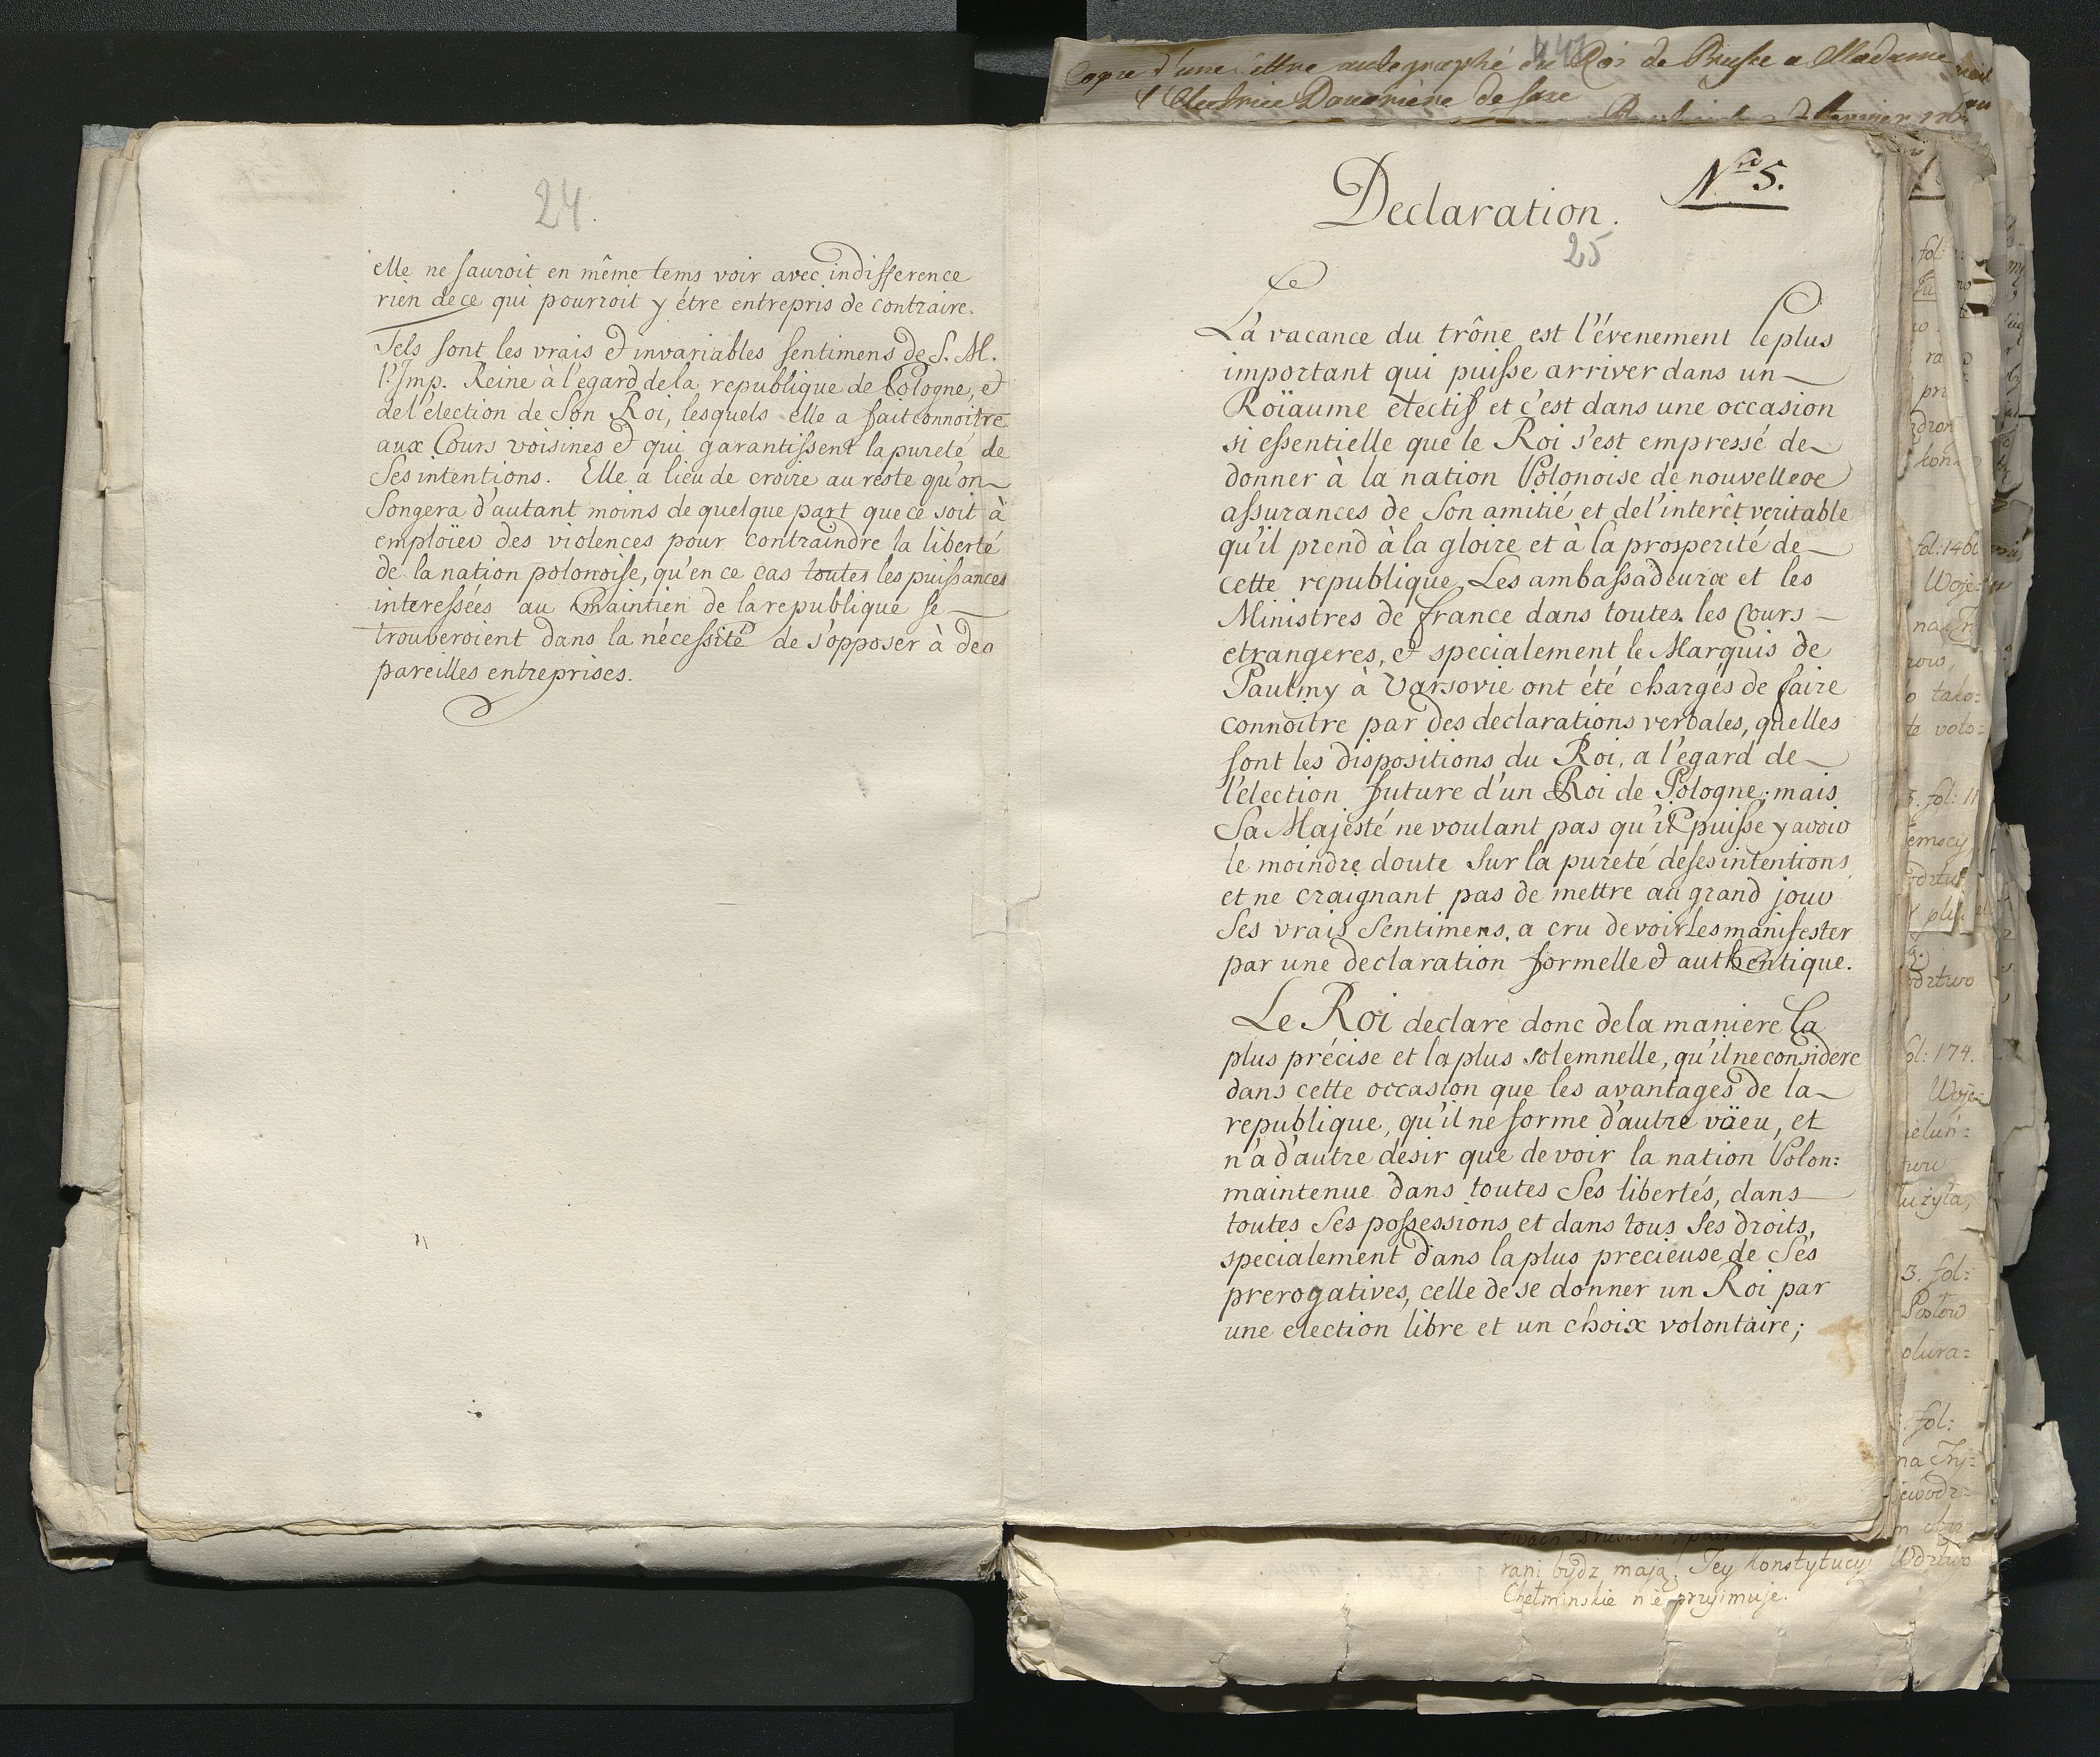 24.
elle ne sauroit en même tems voir avec indifference
rien de ce qui pourroit y être entrepris de contraire.
Tels sont les vrais et invariables sentimens de S. M.
l'Imp. Reine à l'egard de la republique de Pologne, et
de l'élection de Son Roi, lesquels elle a fait connoitre
aux Cours voisines et qui garantissent la pureté de
Ses intentions. Elle a lieu de croire au reste qu'on
Songera d'autant moins de quelque part que ce soit à
emploïer des violences pour contraindre la liberté
de la nation polonoise, qu'en ce cas toutes les puissances
interessées au maintien de la republique se
trouveroient dans la nécessité de s'opposer à des
pareilles entreprises.
Copie d'une lettre autographé du Roi de Prusse a Madame
l'Electrice Douariere de Saxe
Declaration.
Nro 5.
25
La vacance du trône est l'évenement le plus
important qui puisse arriver dans un
Roïaume electif et c'est dans une occasion
si essentielle que le Roi s'est empressé de
donner à la nation Polonoise de nouvelles
assurances de Son amitié et de l'interêt veritable
qu'il prend à la gloire et à la prosperité de
cette republique. Les ambassadeurs et les
Ministres de france dans toutes les Cours
etrangeres, et specialement le Marquis de
Paulmy à Varsovie ont été chargés de faire
connoitre par des declarations verbales, quelles
sont les dispositions du Roi, a l'egard de
l'election future d'un Roi de Pologne; mais
Sa Majesté ne voulant pas qu'il puisse y avoir
le moindre doute Sur la pureté de ses intentions,
et ne craignant pas de mettre au grand jour
Ses vrais Sentimens, a cru devoir les manifester
par une declaration formelle et authentique.
Le Roi declare donc de la maniere la
plus précise et la plus solemnelle, qu'il ne considere
dans cette occasion que les avantages de la
republique, qu'il ne forme d'autre väeu, et
n'a d'autre desir que de voir la nation Polon:
maintenue dans toutes Ses libertés, dans
toutes Ses possessions et dans tous Ses droits,
specialement dans la plus precieuse de Ses
prerogatives, celle de se donner un Roi par
une election libre et un choix volontaire;
fol: 146
Woje:
tako:
te volo:
3. fol: 11
fol: 174.
Woje:
3. fol:
Posłow
fol:
rani bydz mają. Tey konstytucyi Wdztwo
Chełminskie nie przyimuje.